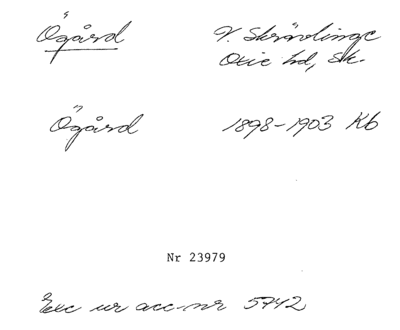 Ögård V. Skrävlinge
Oxie hd, Sk.
Ögård 1898-1903 Kb
Nr 23979
Exc ur acc-nr 5742